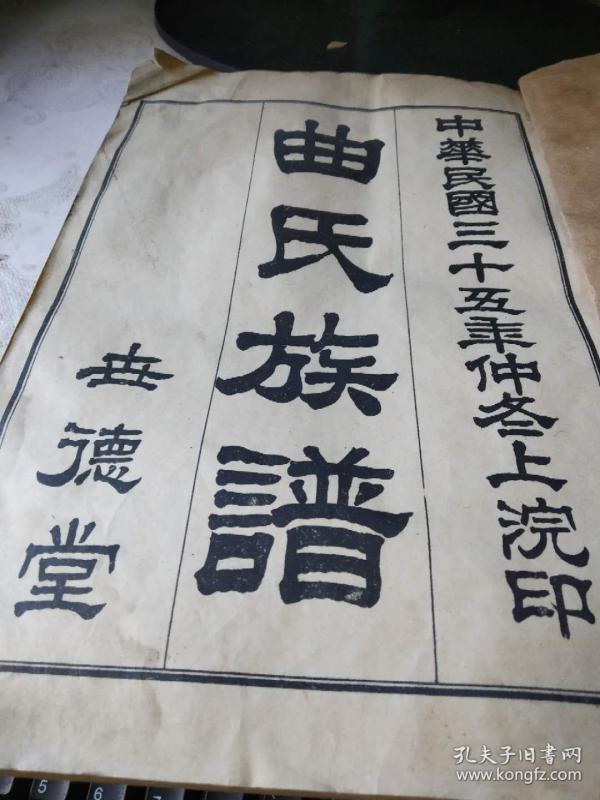 中華民國三十五年仲冬上浣印
曲氏族譜
世德堂
孔夫子旧书网
www.kongfz.com
5
6
7